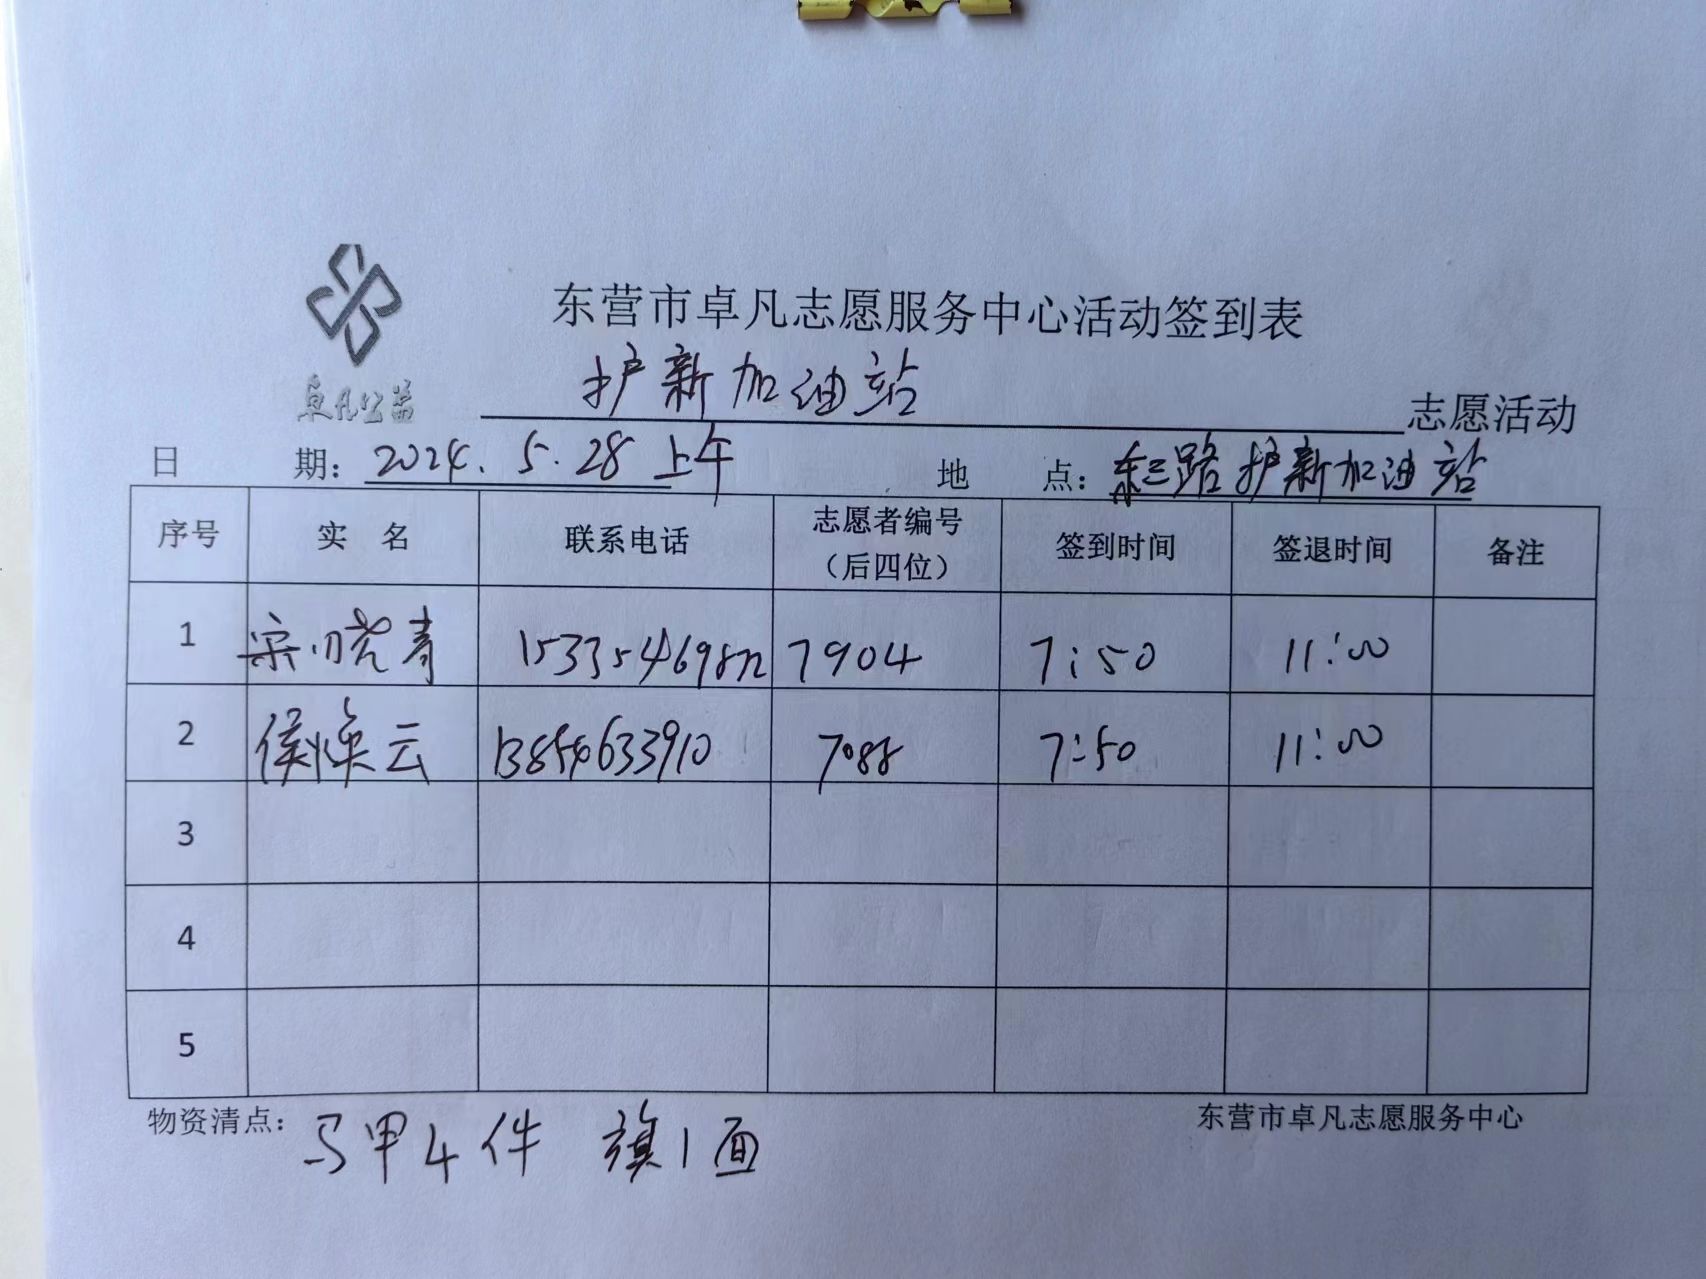 东营市卓凡志愿服务中心活动签到表
卓凡公益
护新加油站 志愿活动
日 期: 2024.5.28 上午 地 点: 东三路护新加油站
序号 实 名 联系电话 志愿者编号(后四位) 签到时间 签退时间 备注
1 宋晓青 7904 7:50 11:00
2 侯焕云 13854633910 7088 7:50 11:00
3
4
5
物资清点: 马甲4件 旗1面 东营市卓凡志愿服务中心